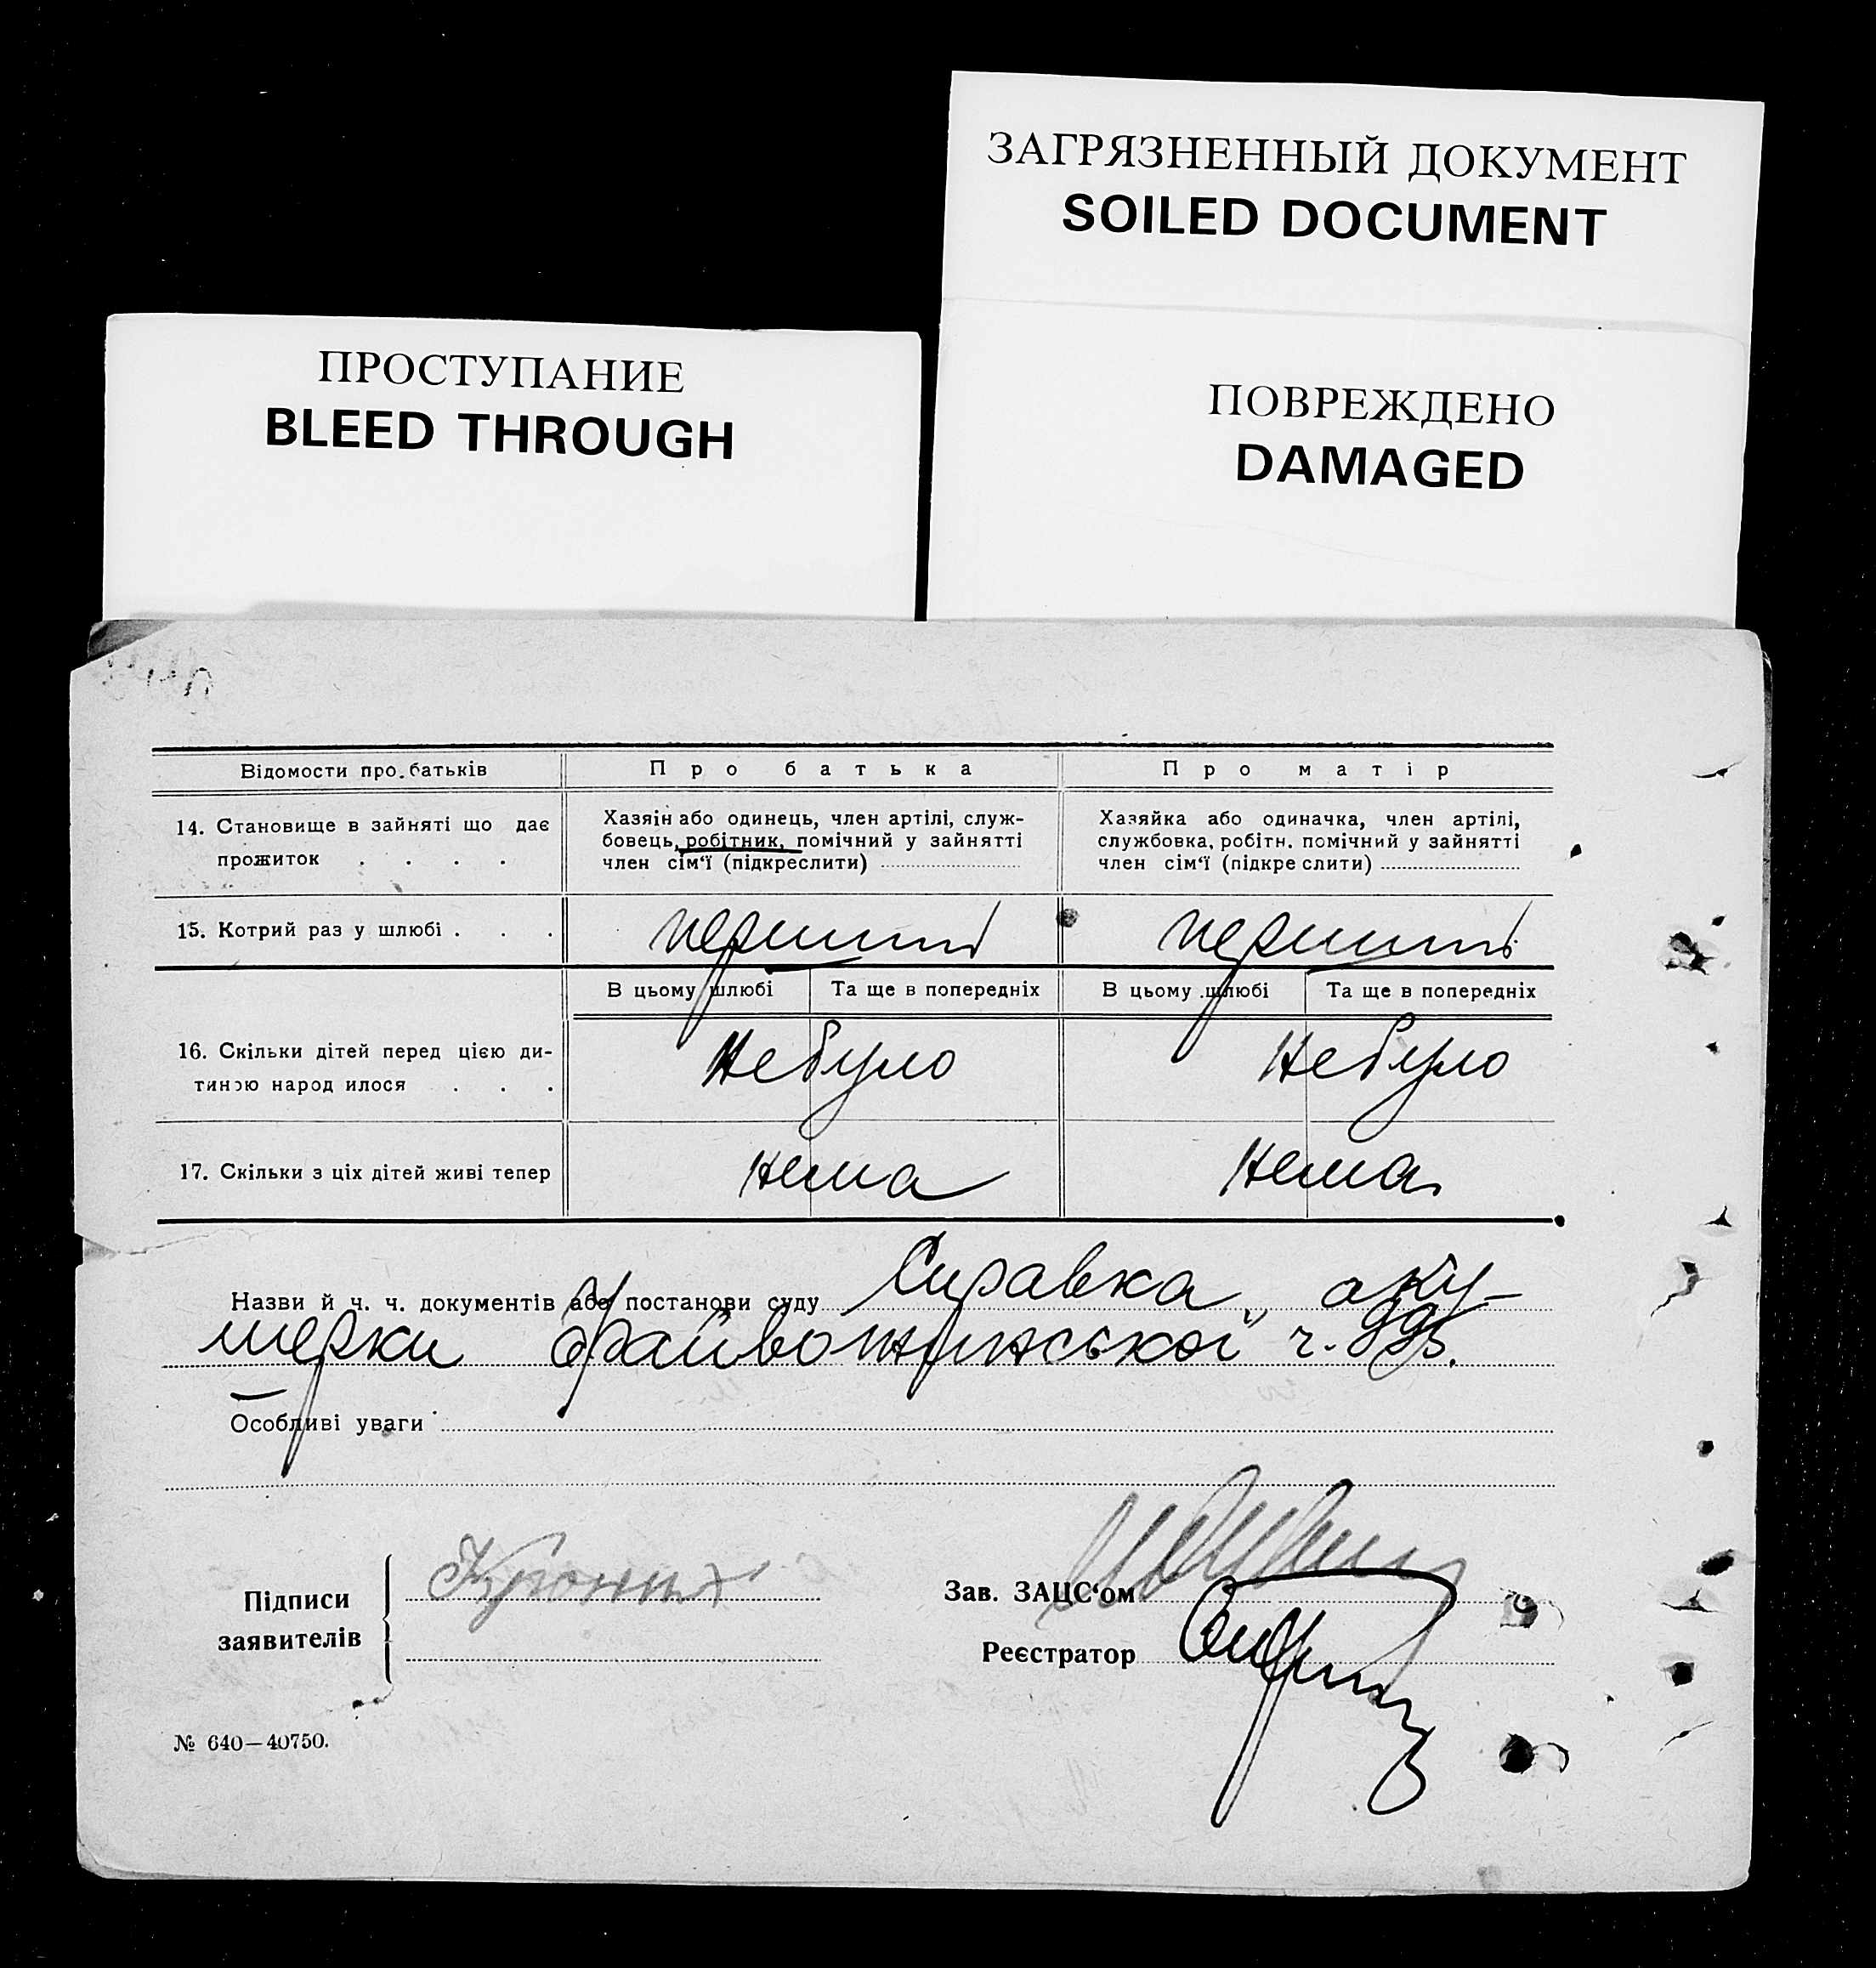 ЗАГРЯЗНЕННЫЙ ДОКУМЕНТ
SOILED DOCUMENT
ПРОСТУПАНИЕ
BLEED THROUGH
ПОВРЕЖДЕНО
DAMAGED
Відомости про батьків
Про батька
Про матір
14. Становище в зайняті що дає
прожиток . . . .
Хазяін або одинець, член артілі, служ-
бовець, робітник, помічний у зайнятті
член сім‘ї (підкреслити)
Хазяйка або одиначка, член артілі,
службовка, робітн. помічний у зайнятті
член сім‘ї (підкре слити)
15. Котрий раз у шлюбі . . .
перший
перший
В цьому шлюбі
Та ще в попередніх
В цьому шлюбі
Та ще в попередніх
16. Скільки дітей перед цією ди-
тиною народ илося . . .
Небуло
Небуло
17. Скільки з ціх дітей живі тепер
нема
нема
Назви й ч. ч. документів або постанови суду Справка аку-
шерки ч.
Особливі уваги
Підписи
заявителів
Зав. ЗАЦС‘ом
Реєстратор
№ 640—40750.